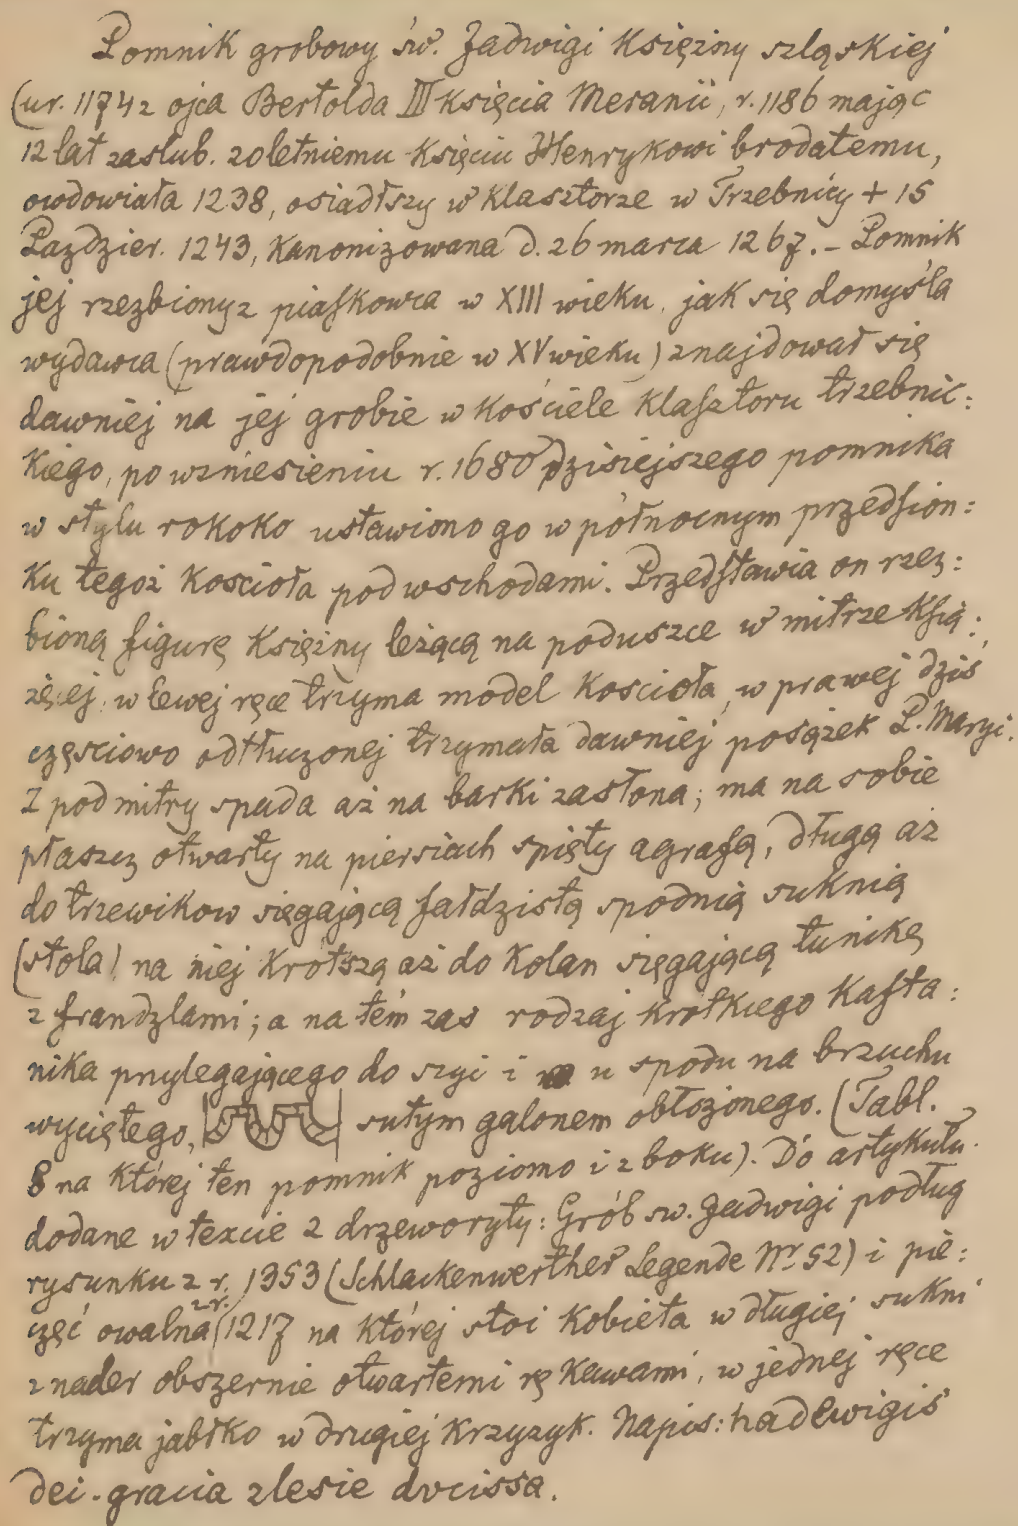 Pomnik grobowy św. Jadwigi Księżny szląskiej
(ur. 1174 z ojca Bertolda III Księcia Meranii, r. 1186 mając
12 lat zaslub. 20 letniemu Księciu Henrykowi brodatemu,
owdowiała 1238, osiadłszy w Klasztorze w Trzebnicy + 15
Pazdzier. 1243, Kanonizowana d. 26 marca 1267. – Pomnik
jej rzezbiony z piaskowca w XIII wieku, jak się domyśla
wydawca (prawdopodobnie w XV wieku) znajdował się
dawniej na jej grobie w Kościele Klasztoru trzebnic:
Kiego, po wzniesieniu r. 1680 dzisiejszego pomnika
w stylu rokoko ustawiono go w północnym przedsion:
Ku tegoż Koscioła pod wschodami. Przedstawia on rzez:
bioną figurę Księżny leżącą na poduszce w mitrze Ksią:
żęcej, w lewej ręce trzyma model Koscioła, w prawej dziś
częsciowo odtłuczonej trzymała dawniej posążek P. Maryi.
Z pod mitry spada aż na barki zasłona; ma na sobie
płaszcz otwarty na piersiach spięty agrafą, długą aż
do trzewikow sięgającą fałdzistą spodnią suknią
(stola) na niej Krótszą aż do Kolan sięgającą tunikę
z frandzlami; a na tém zas rodzaj Krótkiego Kafta:
nika przylegającego do szyi i u spodu na brzuchu
wyciętego, sutym galonem obłożonego. (Tabl.
8 na której ten pomnik poziomo i z boku). Do artykułu
dodane w texcie 2 drzeworyty: Grób sw. Jadwigi podług
rysunku z r. 1353 (Schlackenwerther Legende Nr 52) i pie:
częć owalna z r. 1217 na której stoi Kobieta w długiej sukni
z nader obszernie otwartemi rękawami, w jednej ręce
trzyma jabłko w drugiej Krzyzyk. Napis: hadewigis
dei. gracia zlesie dvcissa.